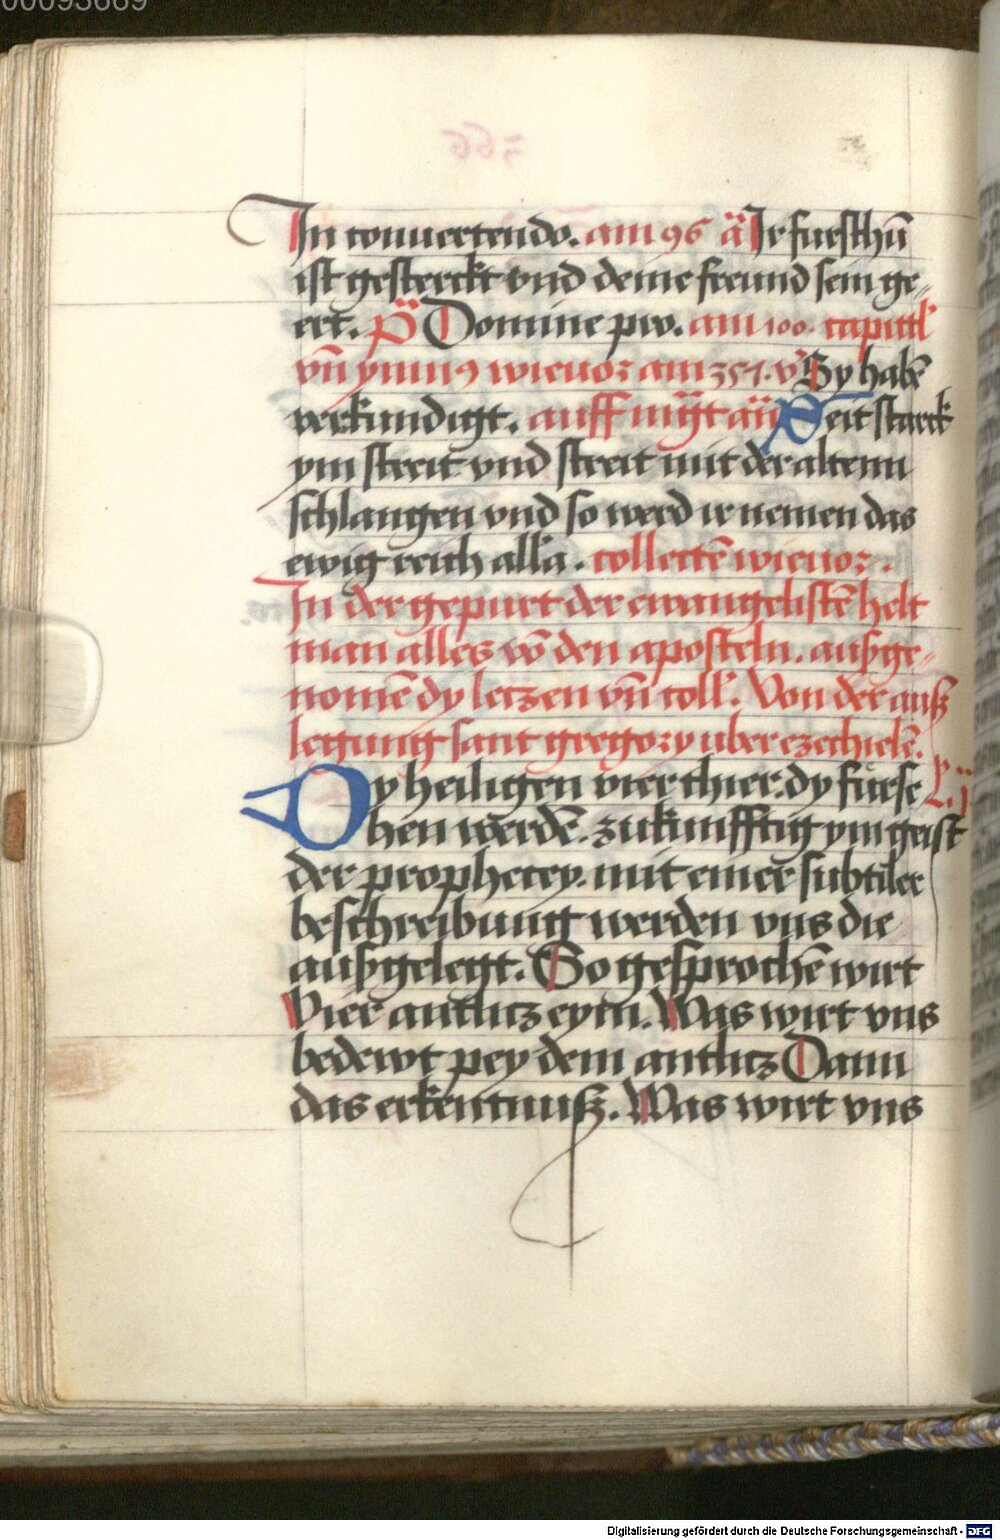 00093669
In conuertendo. am 96 ā Ir fursthū
ist gesterckt vnd deine freund sein ge„
ert. Domine pro. am 100. capittl
vn̄ ymn9 wieuor am 251. v Sy habē
verkundigt. auff mgt an Seit starck
ym streit vnd streit mit der altenn
schlangen vnd so werd ir nemen das
ewig reich alla. collectē wieuor.
In der gepurt der ewangelistē helt
man alles vō den aposteln. außge„
nomē dy leczen vn̄ coll. Von der auß
legung sant gregory uber ezechielē.
Dy heiligen vier thier. dy furse Lij
hen werdē. zukunfftig ym geist
der prophecey. mit einer subtiler
beschreibung werden vns die
außgelegt. So gesprochē wirt
Vier antlitz eym. Was wirt vns
bedewt pey dem antlitz Dann
das erkentnuß. Was wirt vns
Digitalisierung gefördert durch die Deutsche Forschungsgemeinschaft - DFG